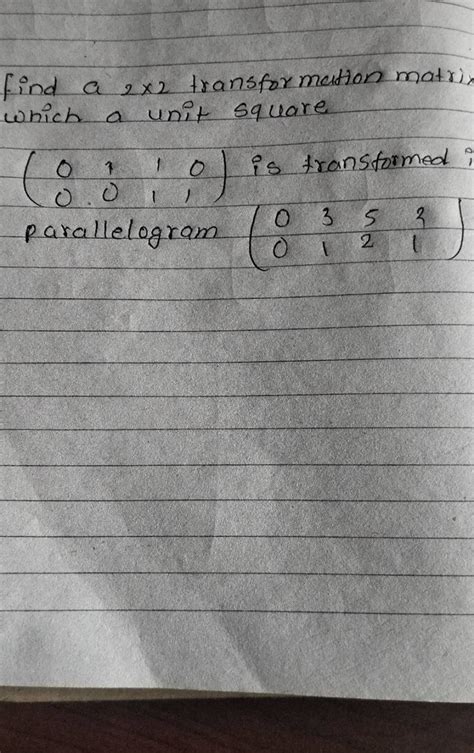 find a 2×2 transformation matrix
which a unit square
( 0 1 1 0 ) is transformed i
0 0 1 1
parallelogram ( 0 3 5 2 )
0 1 2 1